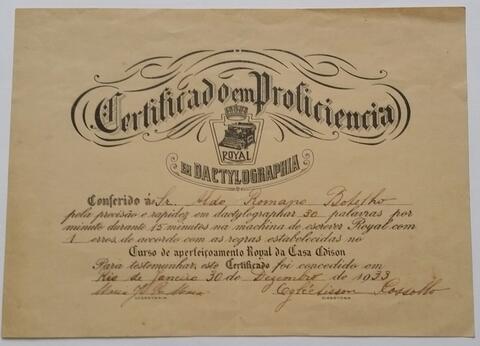 Certificado em Proficiencia
ROYAL
EM DACTYLOGRAPHIA
Conferido à Sr. Aldo Romano Botelho
pela precisão e rapidez em dactylographar 30 palavras por
minuto durante 15 minutos na machina de escrever Royal com
1 erros de accordo com as regras estabelecidas no
Curso de aperfeiçoamento Royal da Casa Edison
Para testemunhar, este Certificado foi concedido em
Rio de Janeiro 30 de Dezembro de 1933